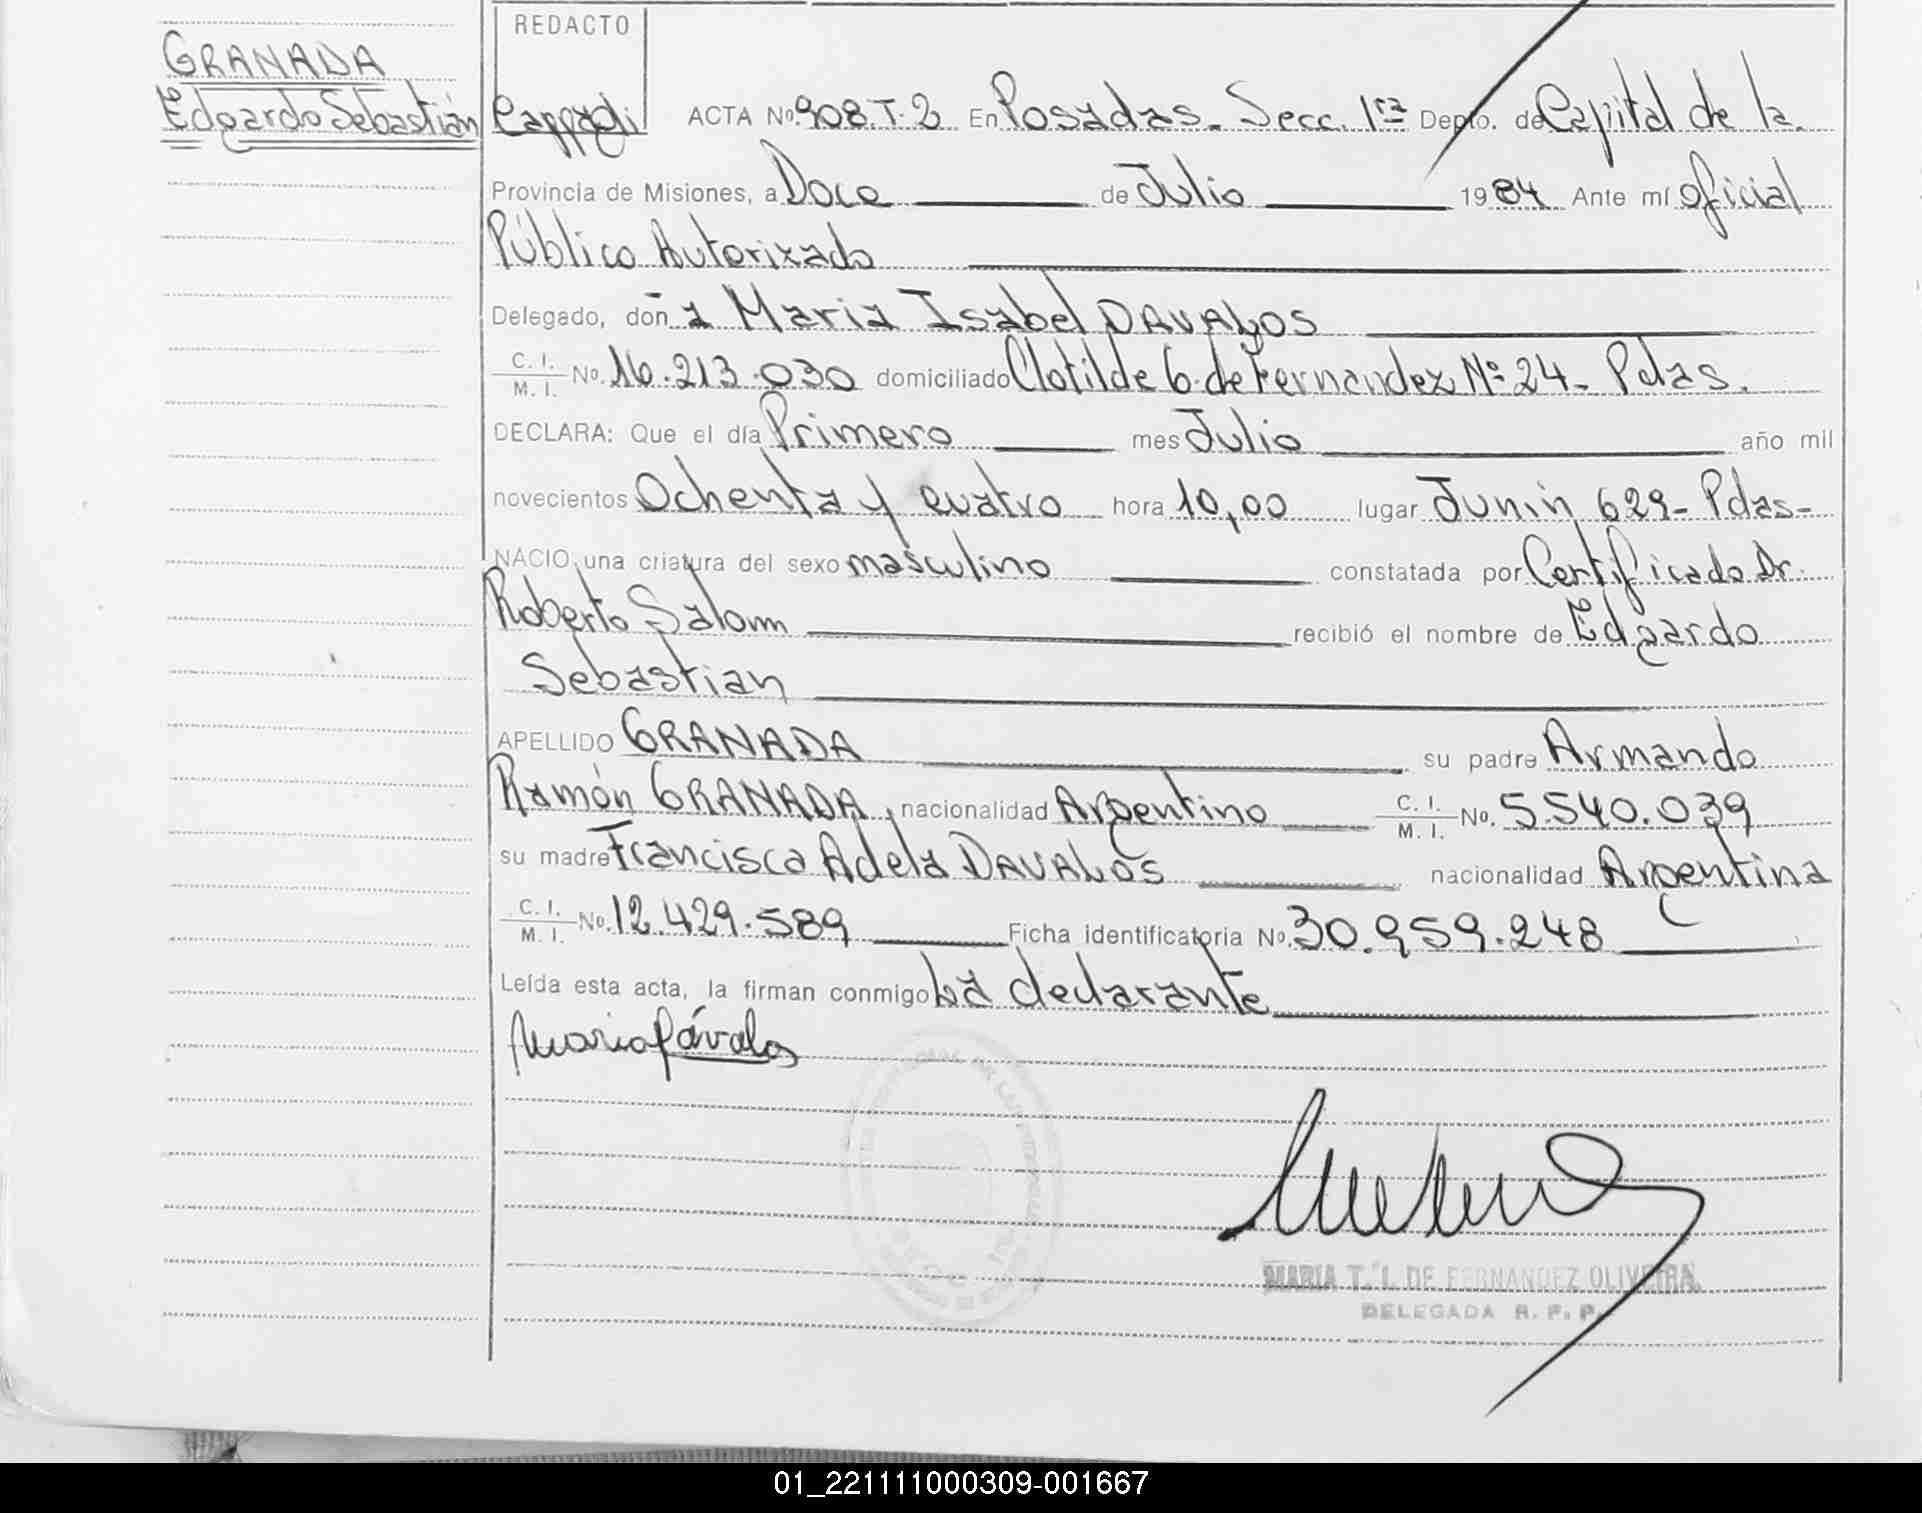 GRANADA
Edgardo Sebastián
REDACTO
ACTA Nº 908.T.2 En Posadas. Secc. 1ra Depto. de Capital de la
Provincia de Misiones, a Doce de Julio 1984 Ante mí oficial
Público Autorizado
Delegado, doña Maria Isabel DAVALOS
C. I. M. I. Nº. 16.213.030 domiciliado Clotilde G. de Fernandez Nº 24- Pdas.
DECLARA: Que el día Primero mes Julio año mil
novecientos Ochenta y cuatro hora 10,00 lugar Junín 629- Pdas-
NACIO una criatura del sexo masculino constatada por Certificado Dr.
Roberto Salom recibió el nombre de Edgardo
Sebastian
APELLIDO GRANADA su padre Armando
Ramón GRANADA, nacionalidad Argentino C. I. M. I. Nº. 5.540.039
su madre Francisca Adela DAVALOS nacionalidad Argentina
C. I. M. I. Nº. 12.429.589 Ficha identificatoria Nº. 30.959.248
Leída esta acta, la firman conmigo La declarante
Maria Dávalos
MARIA T. I. DE FERNANDEZ OLIVEIRA
DELEGADA R. P. P.
01_221111000309-001667